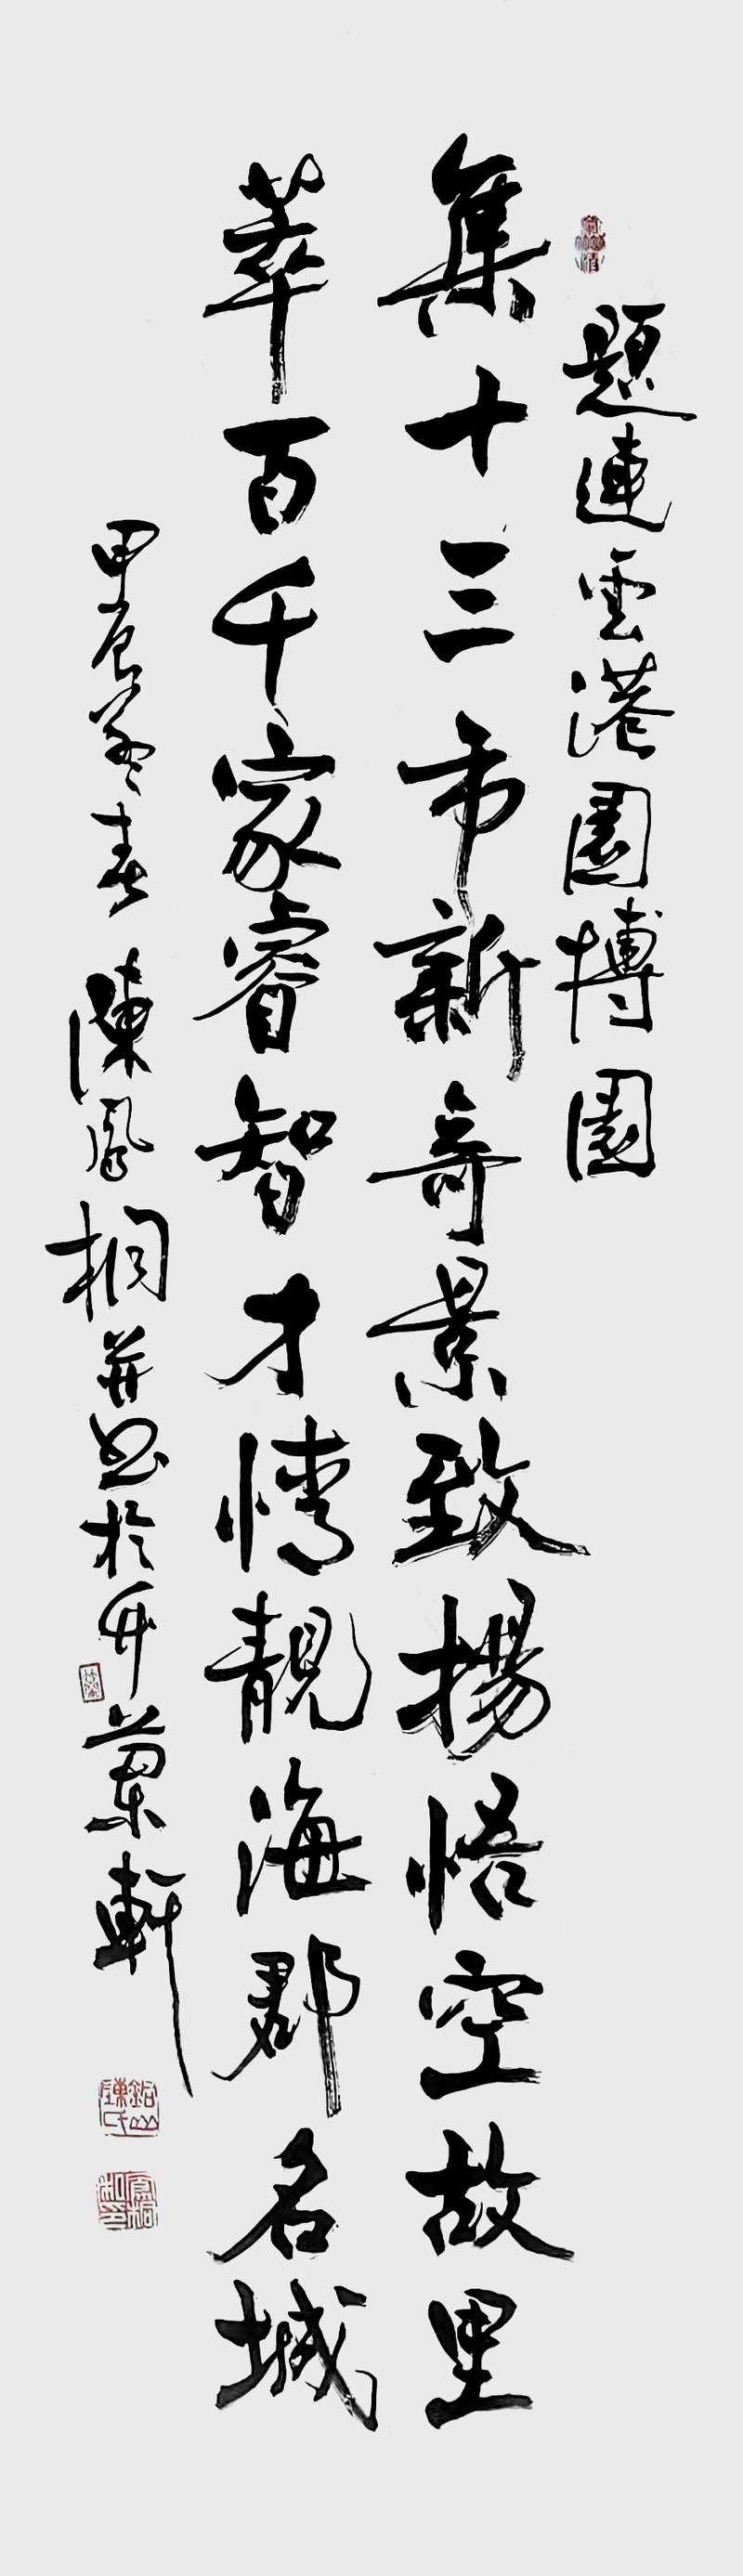 題連雲港園博園
集十三市新奇景致揚悟空故里
萃百千家睿智才情靚海郡名城
甲辰春 陳鳳桐并書於竹蘭軒
鉛山陳氏
鳳桐私印